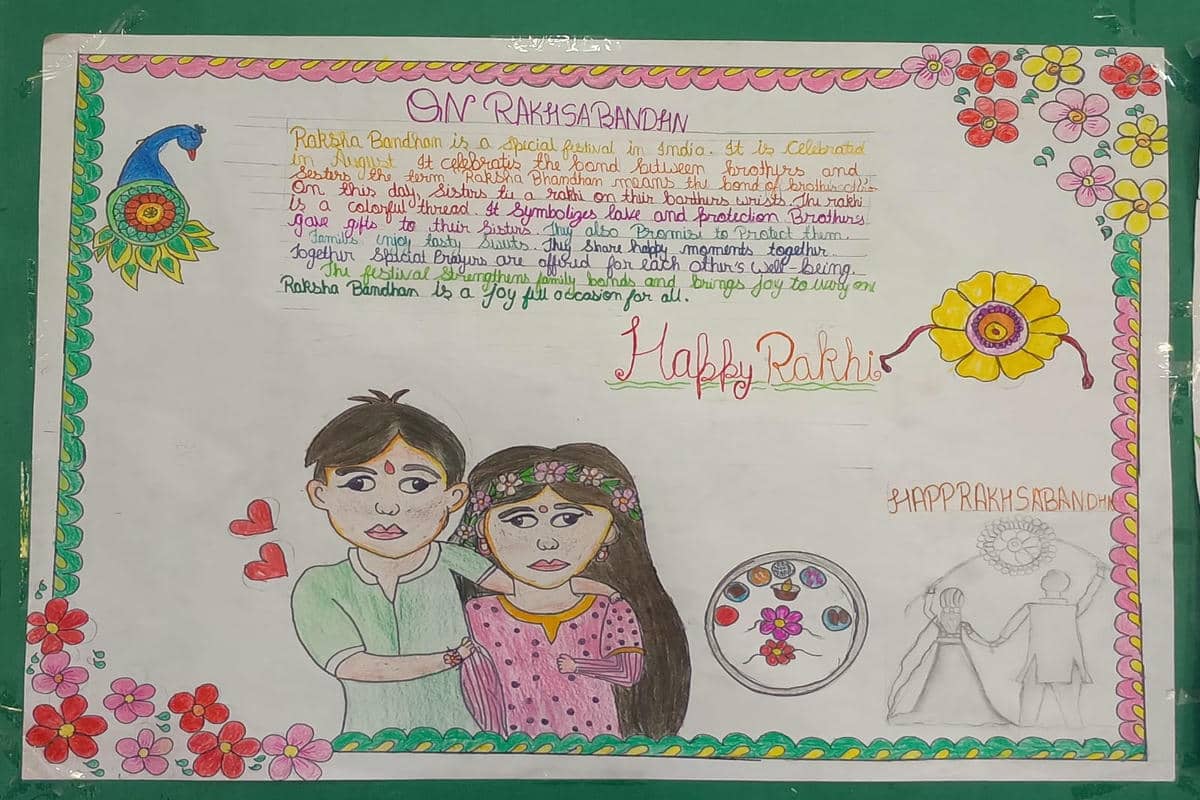 ON RAKHSABANDHN
Raksha Bandhan is a special festival in India. It is Celebrated
in August It celebrates the bond between brothers and
Sisters the term Raksha Bhandhan means the bond of
On this day, Sisters tie a rakhi on their barthers wrists. The rakhi
is a colorful thread. It Symbolizes love and protection Brothers
gave gifts to their Sisters. They also Promise to Protect them.
Familis enjoy tasty Sweets. They Share happy moments together
Together Special Prayers are offired for each other's well-being.
The festival strengthens family bonds and brings joy to every one
Raksha Bandhan is a joy full occasion for all.
Happy Rakhi
HAPP RAKHSABANDHN